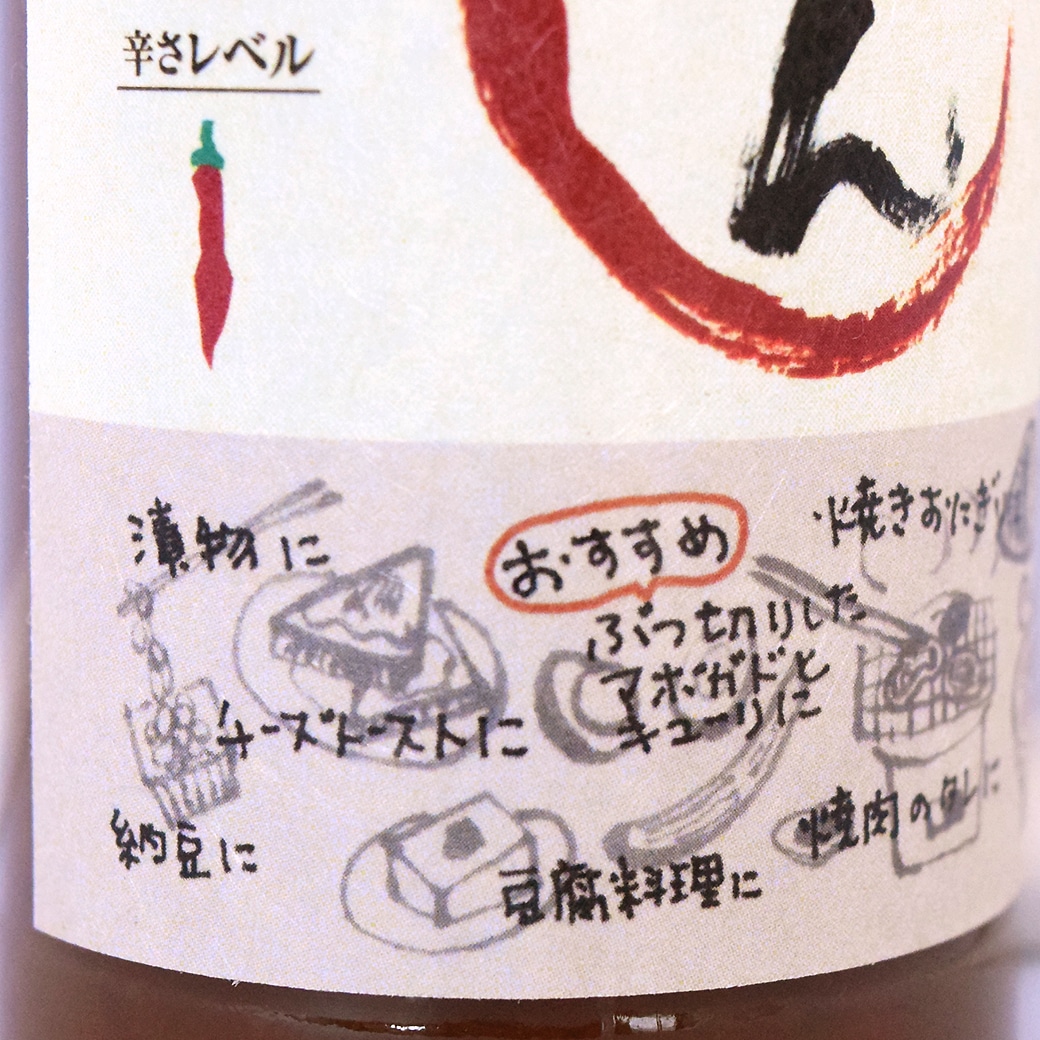 辛さレベル
ん
漬物に
おすすめ
焼きおにぎり
ぶつ切りした
アボガドと
キューリに
チーズトーストに
納豆に
豆腐料理に
焼肉のタレに